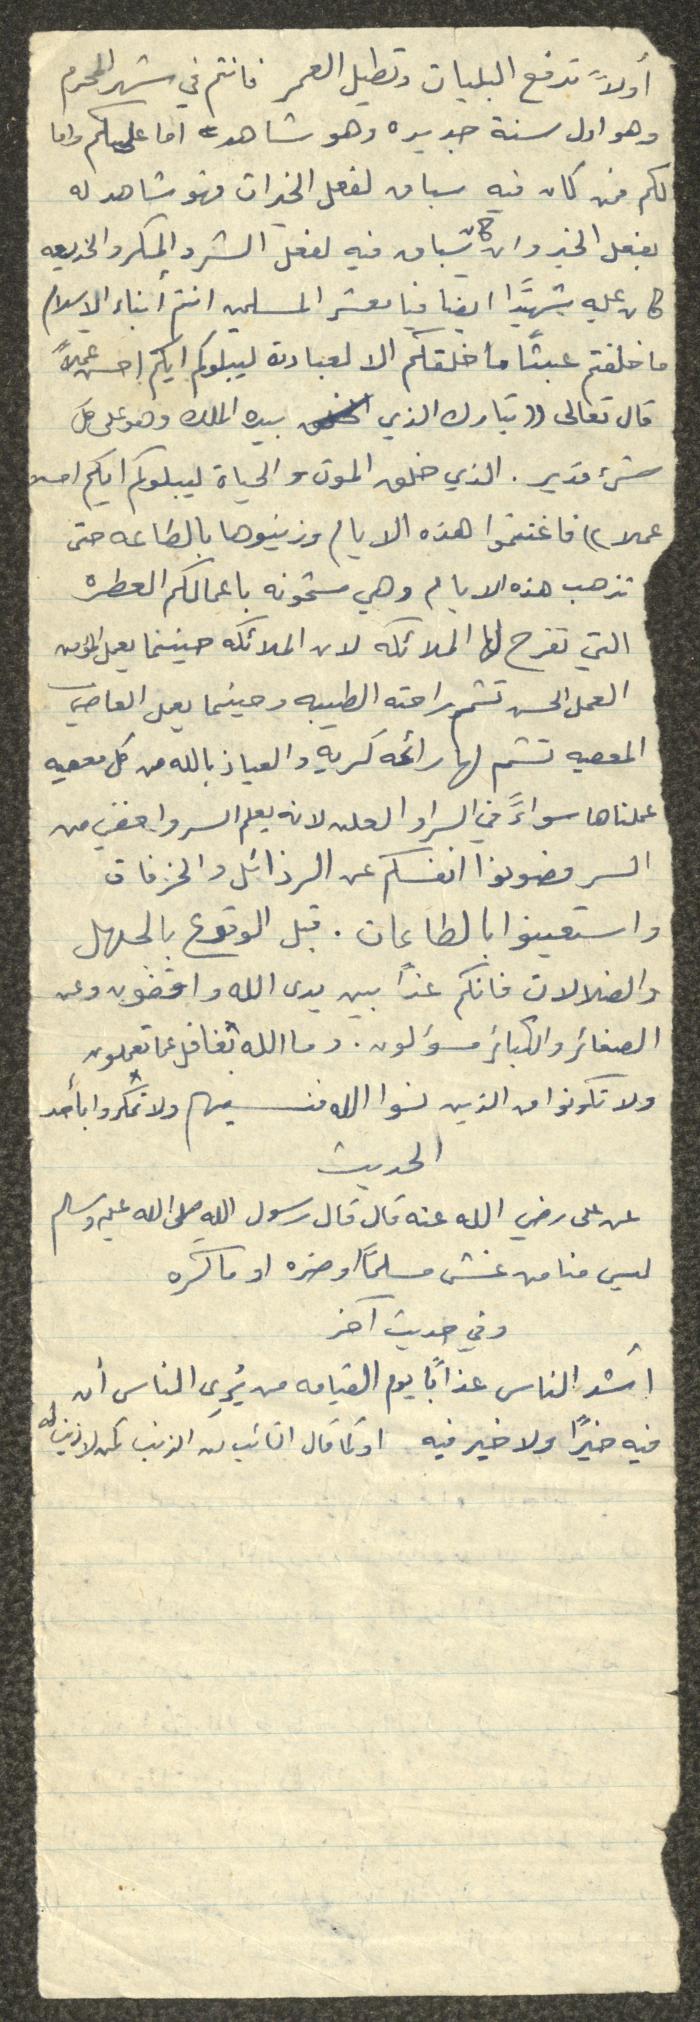 أولاً تدفع البليات وتطيل العمر فانتم في شهر المحرم
وهو اول سنة جديده وهو شاهد اما عليكم واما
لكم فمن كان فيه سباق لفعل الخيرات فهو شاهد له
بفعل الخير وان كان سباق فيه لفعل الشر والمكر والخديعه
كان عليه شهيدًا ايضا فيا معشر المسلمين انتم أبناء الاسلام
ما خلقتم عبثًا ما خلقكم الا لعبادته ليبلوكم ايكم احسن عملاً
قال تعالى (( تبارك الذي بيده الملك وهو على كل
شيء قدير . الذي خلق الموت والحياة ليبلوكم ايكم احسن
عملا )) فاغتنموا هذه الايام وزينوها بالطاعه حتى
تذهب هذه الايام وهي مشحونه باعمالكم العطره
التي تفرح لها الملائكه لان الملائكه حينما يعمل المؤمن
العمل الحسن تشم راحته الطيبه وحينما يعمل العاصي
المعصيه تشم لها رائحه كريه والعياذ بالله من كل معصيه
عملناها سواءً في السر او العلن لانه يعلم السر واخفى من
السر فصونوا انفسكم عن الرذائل والخزفات
واستعينوا بالطاعات . قبل الوقوع بالجهل
والضلالات فانكم غدًا بين يدى الله واقفون وعن
الصغائر والكبائر مسؤلون . وما الله بغافل عما تعملون
ولا تكونوا من الذين نسوا الله فنسيهم ولا تمكروا بأحد
الحديث
عن على رضي الله عنه قال قال رسول الله صلى الله عليه وسلم
ليس منا من غش مسلمًا او ضره او ماكره
وفي حديث آخر
أشد الناس عذابًا يوم القيامه من يُرِى الناس أن
فيه خيرًا ولا خير فيه او كما قال التائب من الذنب كمن لا ذنب له